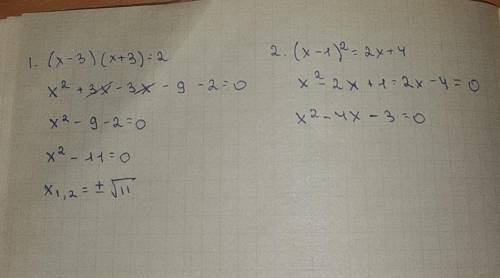 1. (x-3)(x+3)=2
x² + 3x - 3x - 9 - 2 = 0
x² - 9 - 2 = 0
x² - 11 = 0
x₁,₂ = ± √11
2. (x-1)² = 2x+4
x² - 2x + 1 = 2x - 4 = 0
x² - 4x - 3 = 0